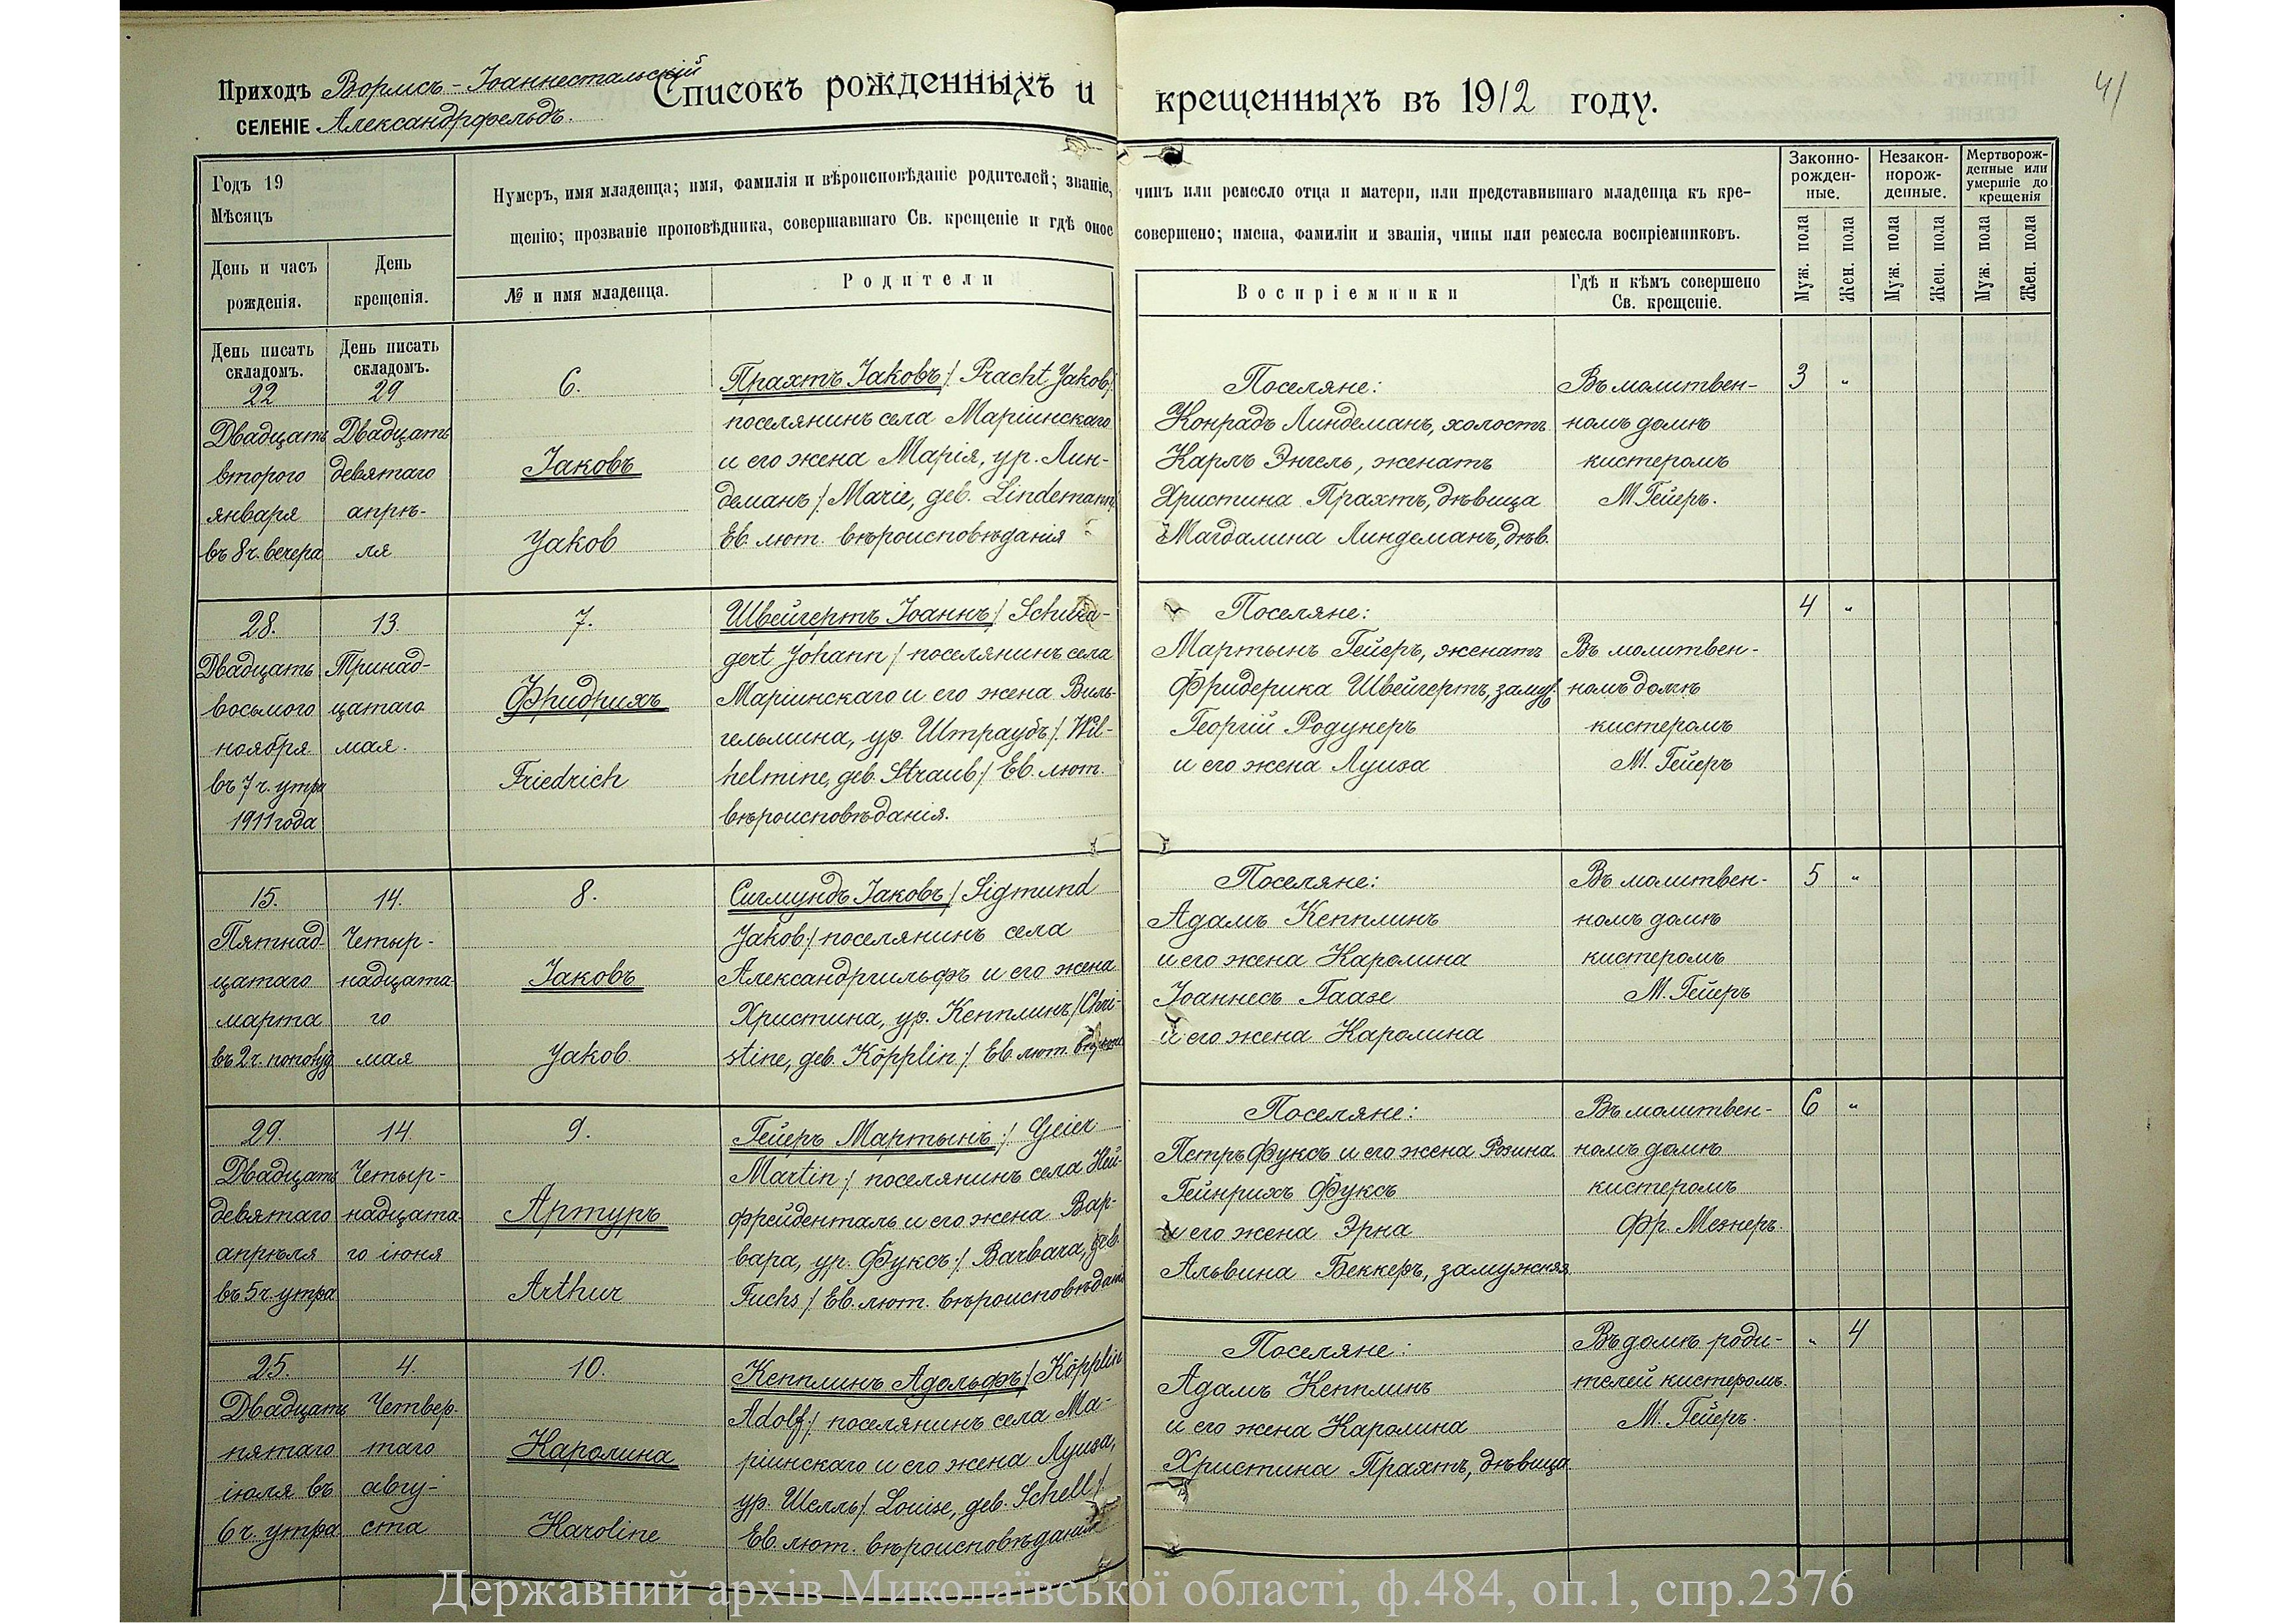 Приходъ Вормсъ-Іоаннестальскій
СЕЛЕНІЕ Александрфельдъ.
Списокъ рожденныхъ и крещенныхъ въ 1912 году.
41
Годъ 19
Мѣсяцъ
День и часъ рожденія.
День крещенія.
Нумеръ, имя младенца; имя, фамилія и вѣроисповѣданіе родителей; званіе, чинъ или ремесло отца и матери, или представившаго младенца къ кре-
щенію; прозваніе проповѣдника, совершавшаго Св. крещеніе и гдѣ оное совершено; имена, фамиліи и званія, чины или ремесла воспріемниковъ.
№ и имя младенца.
Родители
Воспріемники
Гдѣ и кѣмъ совершено
Св. крещеніе.
Законно-
рожден-
ные.
Незакон-
норож-
денные.
Мертворож-
денные или
умершіе до
крещенія
Муж. пола
Жен. пола
Муж. пола
Жен. пола
Муж. пола
Жен. пола
День писать
складомъ.
22
Двадцать
второго
января
въ 8 ч. вечера
День писать
складомъ.
29
Двадцать
девятаго
апрѣ-
ля
6.
Іаковъ
Jakob
Прахтъ Іаковъ /: Pracht Jakob :/
поселянинъ села Маріинскаго
и его жена Марія, ур. Лин-
деманъ /: Marie, geb. Lindemann :/
Ев. лют. вѣроисповѣданія
Поселяне:
Конрадъ Линдеманъ, холостъ
Карлъ Энгель, женатъ
Христина Прахтъ, дѣвица
Магдалина Линдеманъ, дѣв.
Въ молитвен-
номъ домѣ
кистеромъ
М. Гейеръ.
3 "
28.
Двадцать
восьмого
ноября
въ 7 ч. утра
1911 года
13.
Тринад-
цатаго
мая.
7.
Фридрихъ
Friedrich
Швейгертъ Іоаннъ /: Schwei-
gert Johann :/ поселянинъ села
Маріинскаго и его жена Виль-
гельмина, ур. Штраубъ /: Wil-
helmine, geb. Straub :/ Ев. лют.
вѣроисповѣданія.
Поселяне:
Мартынъ Гейеръ, женатъ
Фридерика Швейгертъ, замуж.
Георгій Родунеръ
и его жена Луиза
Въ молитвен-
номъ домѣ
кистеромъ
М. Гейеръ
4 "
15.
Пятнад-
цатаго
марта
въ 2 ч. пополуд.
14.
Четыр-
надцата-
го
мая
8.
Іаковъ
Jakob
Сигмундъ Іаковъ /: Sigmund
Jakob :/ поселянинъ села
Александргильфъ и его жена
Христина, ур. Кепплинъ /: Chri-
stine, geb. Köpplin :/ Ев. лют.
Поселяне:
Адамъ Кепплинъ
и его жена Каролина
Іоаннесъ Гаазе
и его жена Каролина
Въ молитвен-
номъ домѣ
кистеромъ
М. Гейеръ
5 "
29.
Двадцать
девятаго
апрѣля
въ 5 ч. утра
14.
Четыр-
надцата-
го іюня
9.
Артуръ
Arthur
Гейеръ Мартынъ /: Geier
Martin :/ поселянинъ села Ней-
фрейденталь и его жена Вар-
вара, ур. Фуксъ /: Barbara, geb.
Fuchs :/ Ев. лют. вѣроисповѣданія
Поселяне:
Петръ Фуксъ и его жена Розина
Гейнрихъ Фуксъ
и его жена Эрна
Альвина Беккеръ, замужняя
Въ молитвен-
номъ домѣ
кистеромъ
Фр. Мезнеръ.
6 "
25.
Двадцать
пятаго
іюля въ
6 ч. утра
4.
Четвер-
таго
авгу-
ста
10.
Каролина
Karoline
Кепплинъ Адольфъ /: Köpplin
Adolf :/ поселянинъ села Ма-
ріинскаго и его жена Луиза,
ур. Шелль /: Louise, geb. Schell :/
Ев. лют. вѣроисповѣданія
Поселяне:
Адамъ Кепплинъ
и его жена Каролина
Христина Прахтъ, дѣвица
Въ домѣ роди-
телей кистеромъ
М. Гейеръ.
" 4
Державний архів Миколаївської області, ф.484, оп.1, спр.2376